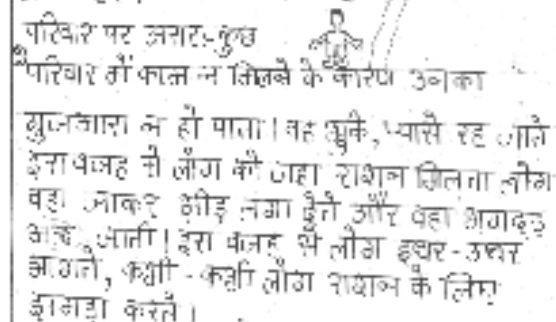 परिवार पर असर:-कुछ
परिवार में काम न मिलने के कारण उनका
गुजआरा न हो पाता। वह भुके, प्यासे रह जाते
इस वजह से लोग को जहा राशन मिलता लोग
वहा जाकर भीड़ लगा देते और वहा भगदड़
मच जाती। इस वजह से लोग इधर-उधर
भागते, कभी-कभी लोग राशन के लिए
झगड़ा करते।